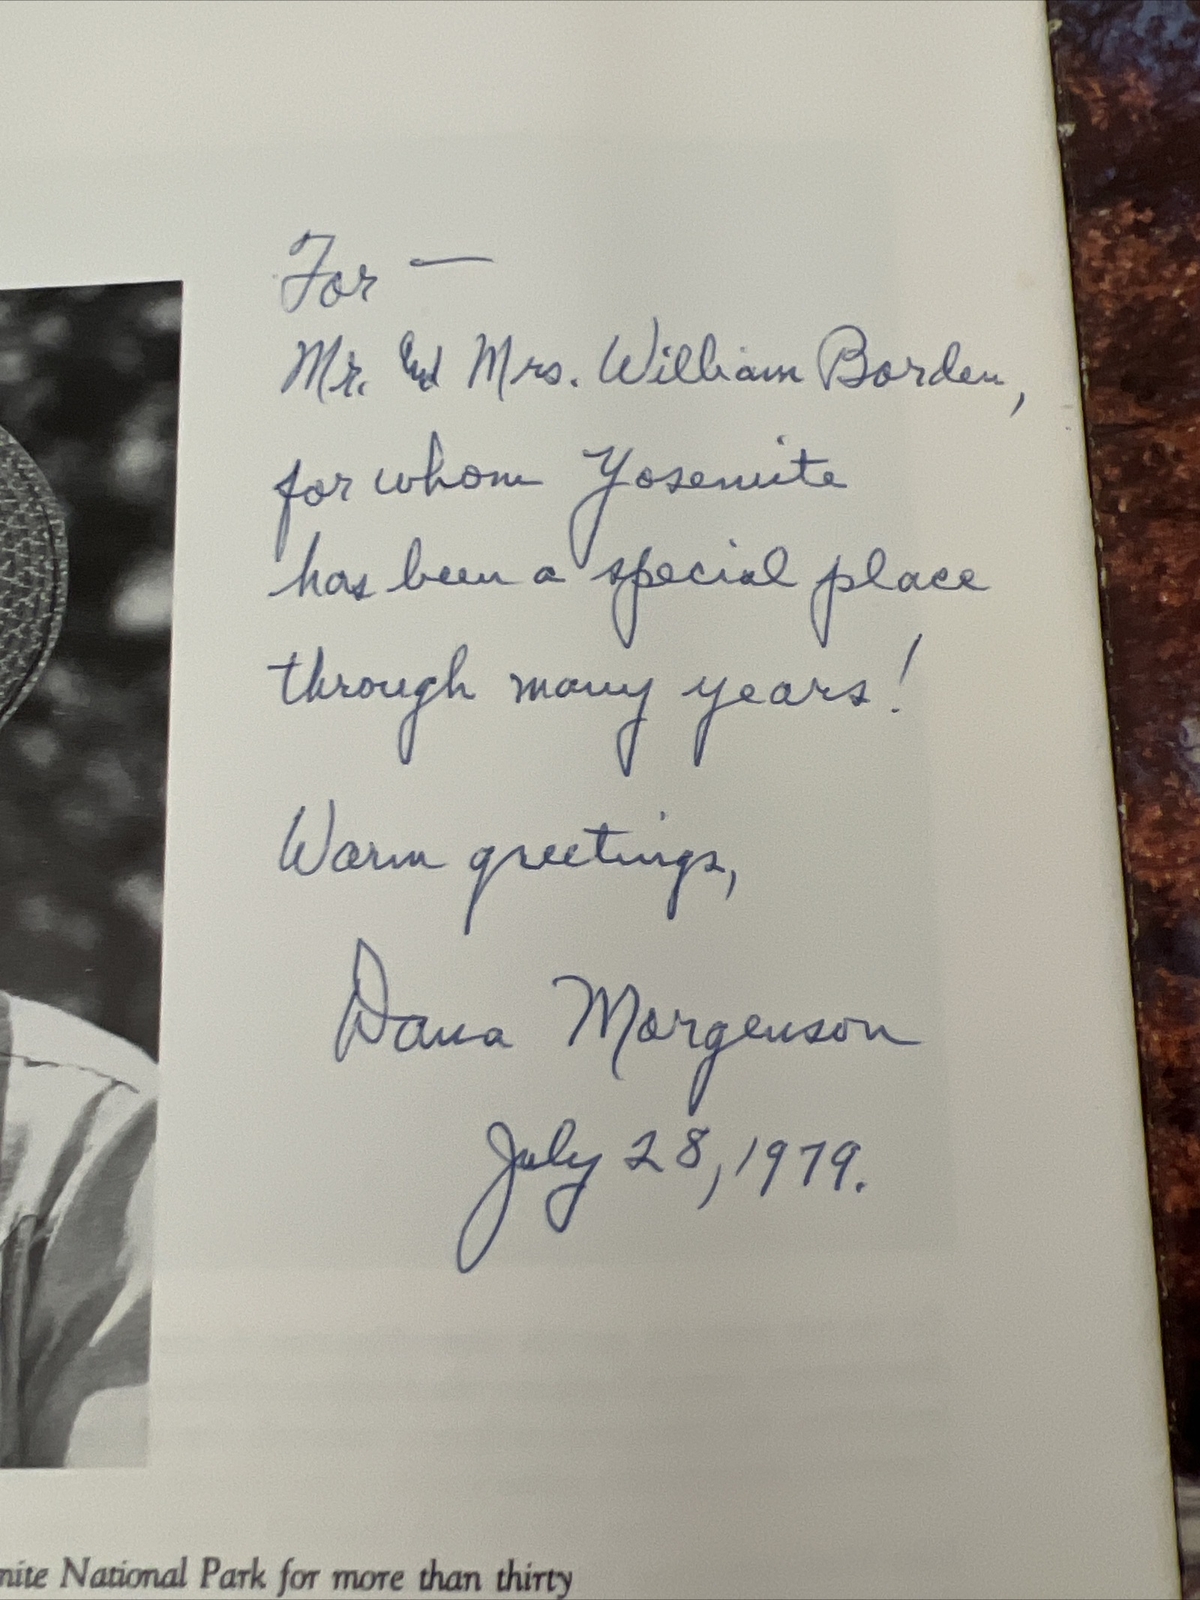 For —
Mr. and Mrs. William Borden,
for whom Yosemite
has been a special place
through many years!
Warm greetings,
Dana Morgenson
July 28, 1979.
mite National Park for more than thirty